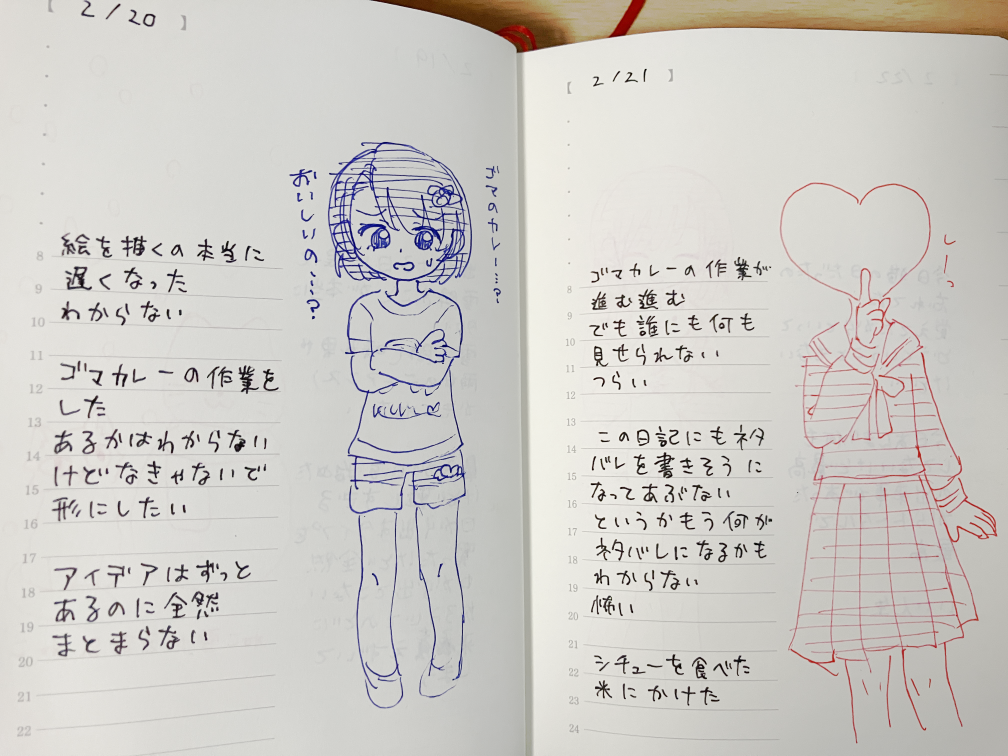 【 2/20 】
8
絵を描くの本当に
9
遅くなった
10
わからない
11
12
ゴマカレーの作業を
13
した
14
あるかはわからない
15
けどなきゃないで
16
形にしたい
17
18
アイデアはずっと
19
あるのに全然
20
まとまらない
21
22
ゴマのカレー…?
おいしいの…?
【 2/21 】
8
ゴマカレーの作業が
9
進む進む
10
でも誰にも何も
11
見せられない
12
つらい
13
14
この日記にもネタ
15
バレを書きそうに
16
なってあぶない
17
というかもう何が
18
ネタバレになるかも
19
わからない
20
怖い
21
22
シチューを食べた
23
米にかけた
24
しーっ